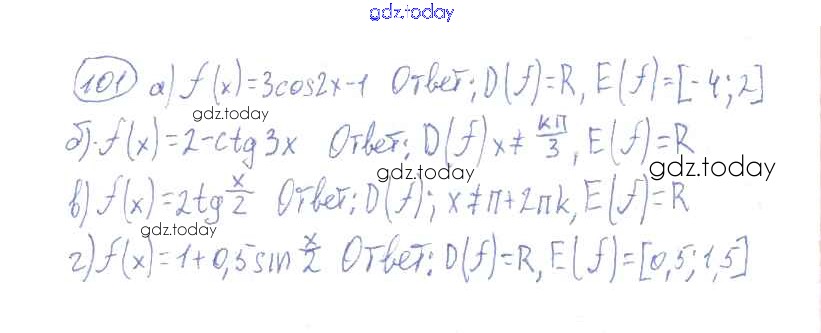 gdz.today
101 а) f(x)=3cos2x-1 Ответ: D(f)=R, E(f)=[-4;2]
gdz.today
б) f(x)=2-ctg3x Ответ: D(f) x≠ kπ/3, E(f)=R
gdz.today gdz.today
в) f(x)=2tg x/2 Ответ: D(f); x≠π+2πk, E(f)=R
gdz.today
г) f(x)=1+0,5sin x/2 Ответ: D(f)=R, E(f)=[0,5;1,5]